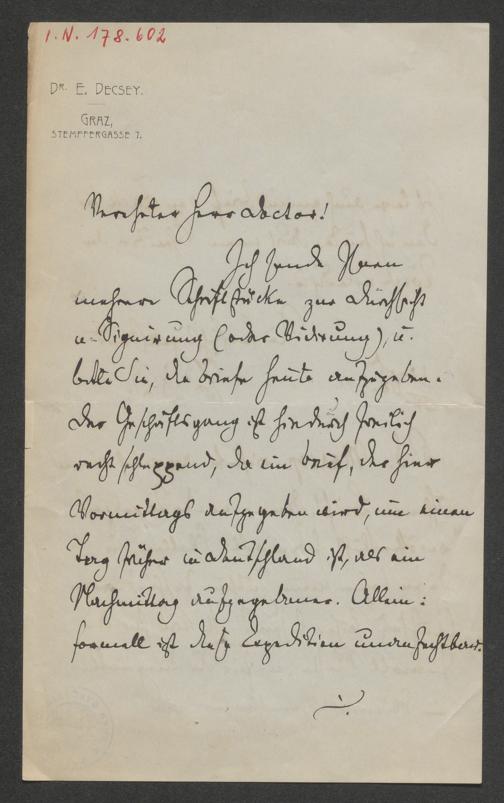 I.N. 178.602
DR. E. DECSEY.
GRAZ,
STEMPFERGASSE 7.
Verehrter Herr Doctor!
Ich sende Ihnen
mehrere Schriftstücke zur Durchsicht
u. Signirung (oder Vidirung), u.
bitte Sie, die Briefe heute aufzugeben.
Der Geschäftsgang ist hiedurch freilich
recht schleppend, da ein Brief, der hier
Vormittags aufgegeben wird, um einen
Tag früher in Deutschland ist, als ein
Nachmittag aufgegebener. Allein:
formell ist diese Expedition unanfechtbar.